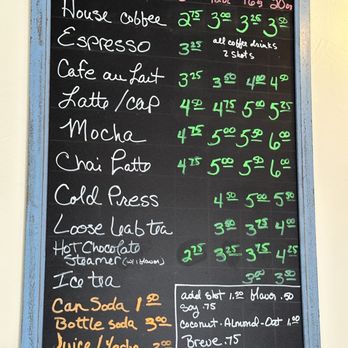 16oz 20oz
House coffee 2.75 3.00 3.25 3.50
Espresso 3.25 all coffee drinks
2 shots
Cafe au Lait 3.25 3.50 4.00 4.50
Latte/cap 4.50 4.75 5.00 5.25
Mocha 4.75 5.00 5.50 6.00
Chai Latte 4.75 5.00 5.50 6.00
Cold Press 4.50 5.00 5.50
Loose leaf tea 3.50 3.75 4.00
Hot Chocolate
Steamer 2.75 3.25 3.75 4.25
Ice tea 3.00 3.50
Can Soda 1.50
Bottle soda 3.00
Juice/
add shot 1.50 flavor .50
Soy .75
Coconut-Almond-Oat 1.00
Breve .75